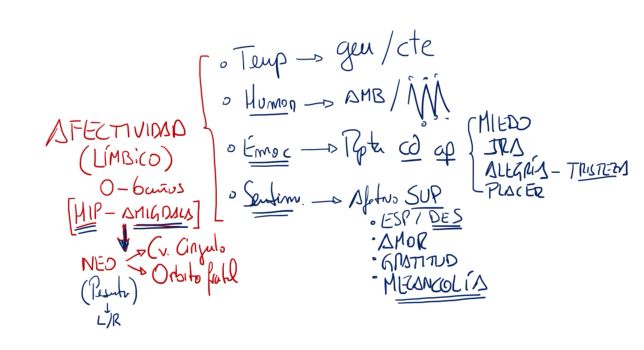 AFECTIVIDAD
(LÍMBICO)
0-6 años
[HIP - AMIGDALA]
NEO
Cv. Cíngulo
Orbito frotal
L/R
Temp → gen / cte
Humor → AMB /
Emoc → Rpta cd ap
MIEDO
IRA
ALEGRÍA - TRISTEZA
PLACER
Sentim. → Afectivo SUP
ESP / DES
AMOR
GRATITUD
MELANCOLÍA